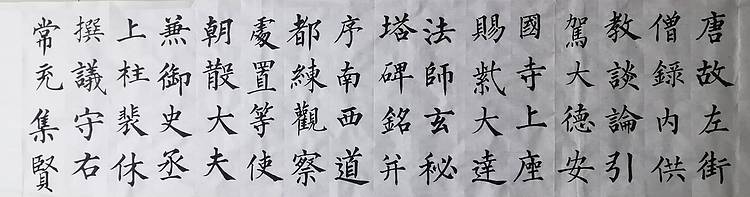 唐故左街
僧錄内供
教談論引
駕大德安
國寺上座
賜紫大達
法師玄秘
塔碑銘并
序南西道
都練觀察
處置等使
朝散大夫
兼御史丞
上柱裴休
撰議守右
常充集賢